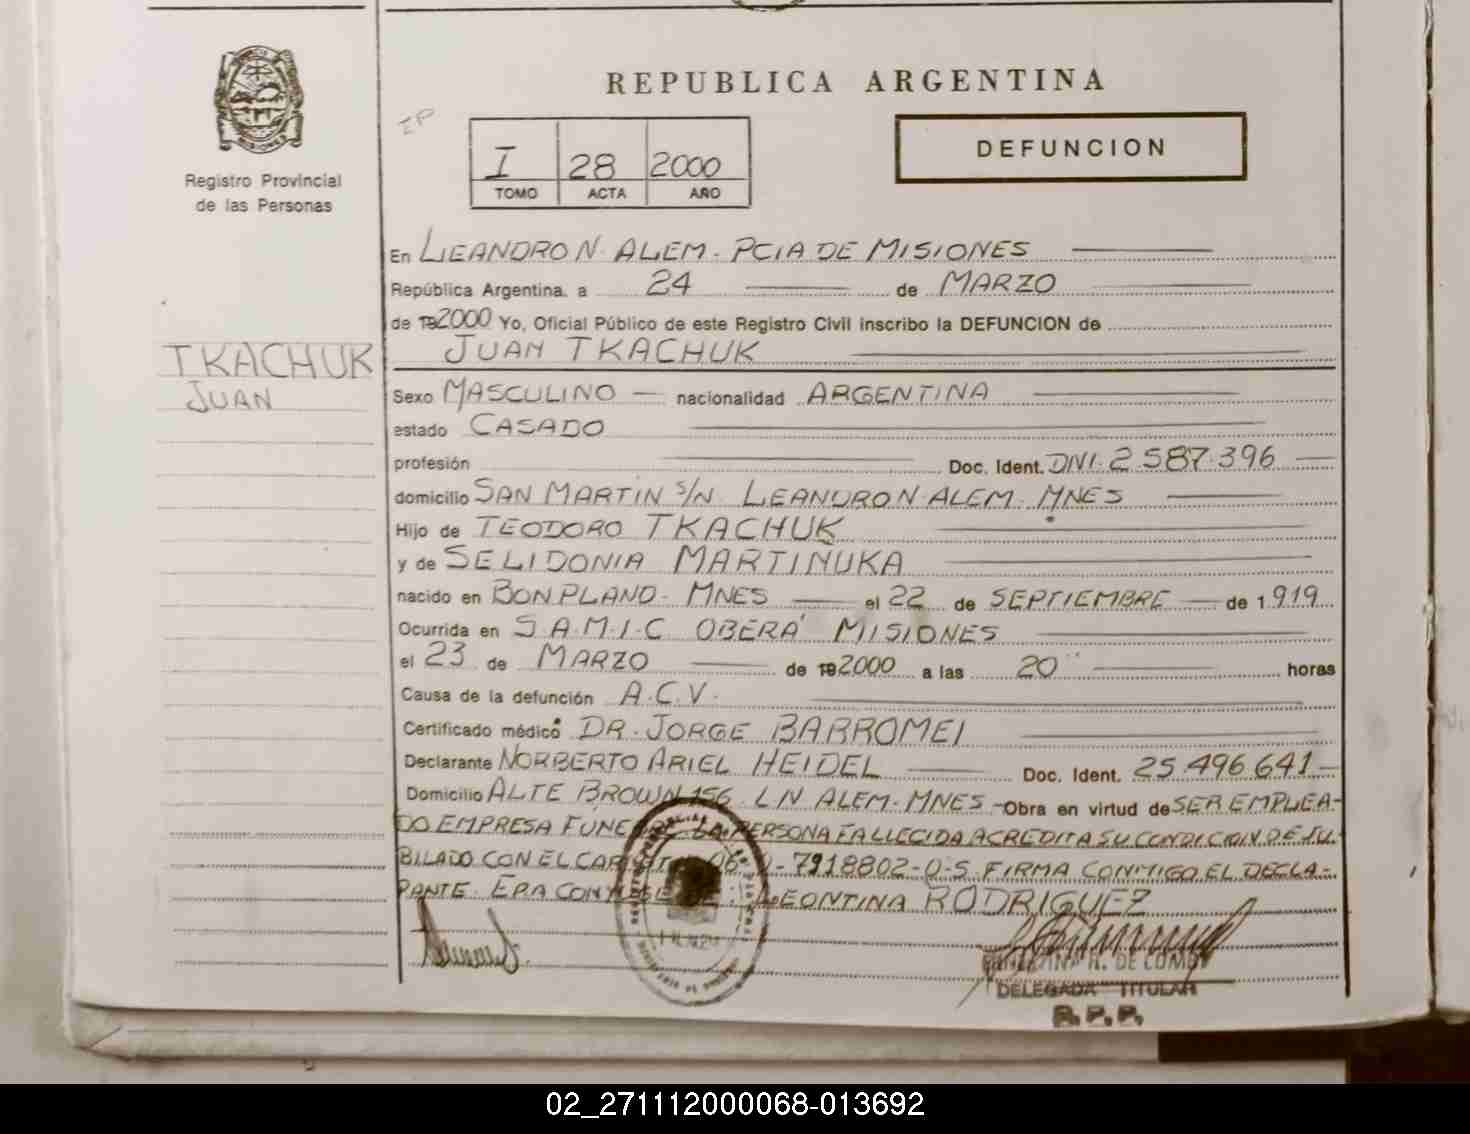 REPUBLICA ARGENTINA
DEFUNCION
I 28 2000
TOMO ACTA AÑO
Registro Provincial
de las Personas
TKACHUK
JUAN
En LEANDRO N. ALEM. PCIA DE MISIONES
República Argentina, a 24 de MARZO
de 192000 Yo, Oficial Público de este Registro Civil inscribo la DEFUNCION de
JUAN TKACHUK
Sexo MASCULINO nacionalidad ARGENTINA
estado CASADO
profesión Doc. Ident. DNI. 2.587.396
domicilio SAN MARTIN S/N LEANDRO N. ALEM. MNES
Hijo de TEODORO TKACHUK
y de SELIDONIA MARTINUKA
nacido en BONPLAND - MNES el 22 de SEPTIEMBRE de 1919
Ocurrida en S.A.M.I.C OBERA MISIONES
el 23 de MARZO de 192000 a las 20 horas
Causa de la defunción A.C.V.
Certificado médico DR. JORGE BARROMEI
Declarante NORBERTO ARIEL HEIDEL Doc. Ident. 25.496.641
Domicilio ALTE BROWN 156 LN ALEM - MNES - Obra en virtud de SER EMPLEA-
DO EMPRESA FUNEBRE. LA PERSONA FALLECIDA ACREDITA SU CONDICION DE JU
BILADO CON EL -7918802-0-5 FIRMA CONMIGO EL DECLA-
RANTE. ERA CONYUGE DE: LEONTINA RODRIGUEZ
DELEGADA TITULAR
R.P.P.
02_271112000068-013692